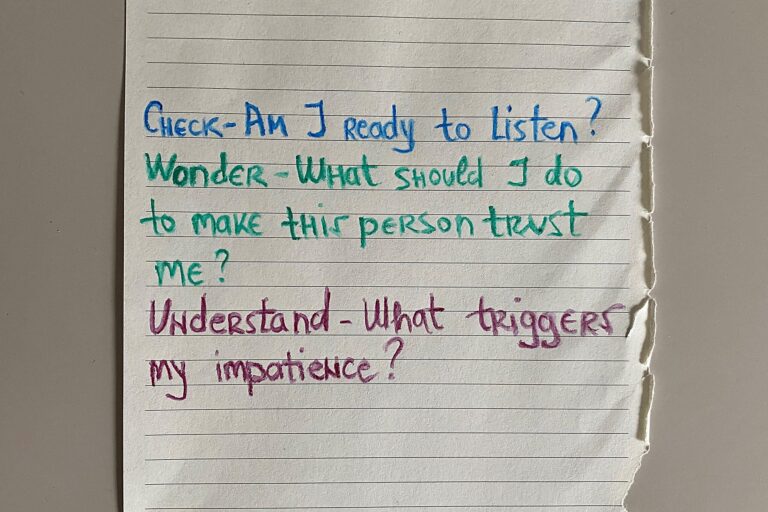 Check - Am I ready to listen?
Wonder - What should I do
to make this person trust
me?
Understand - What triggers
my impatience?